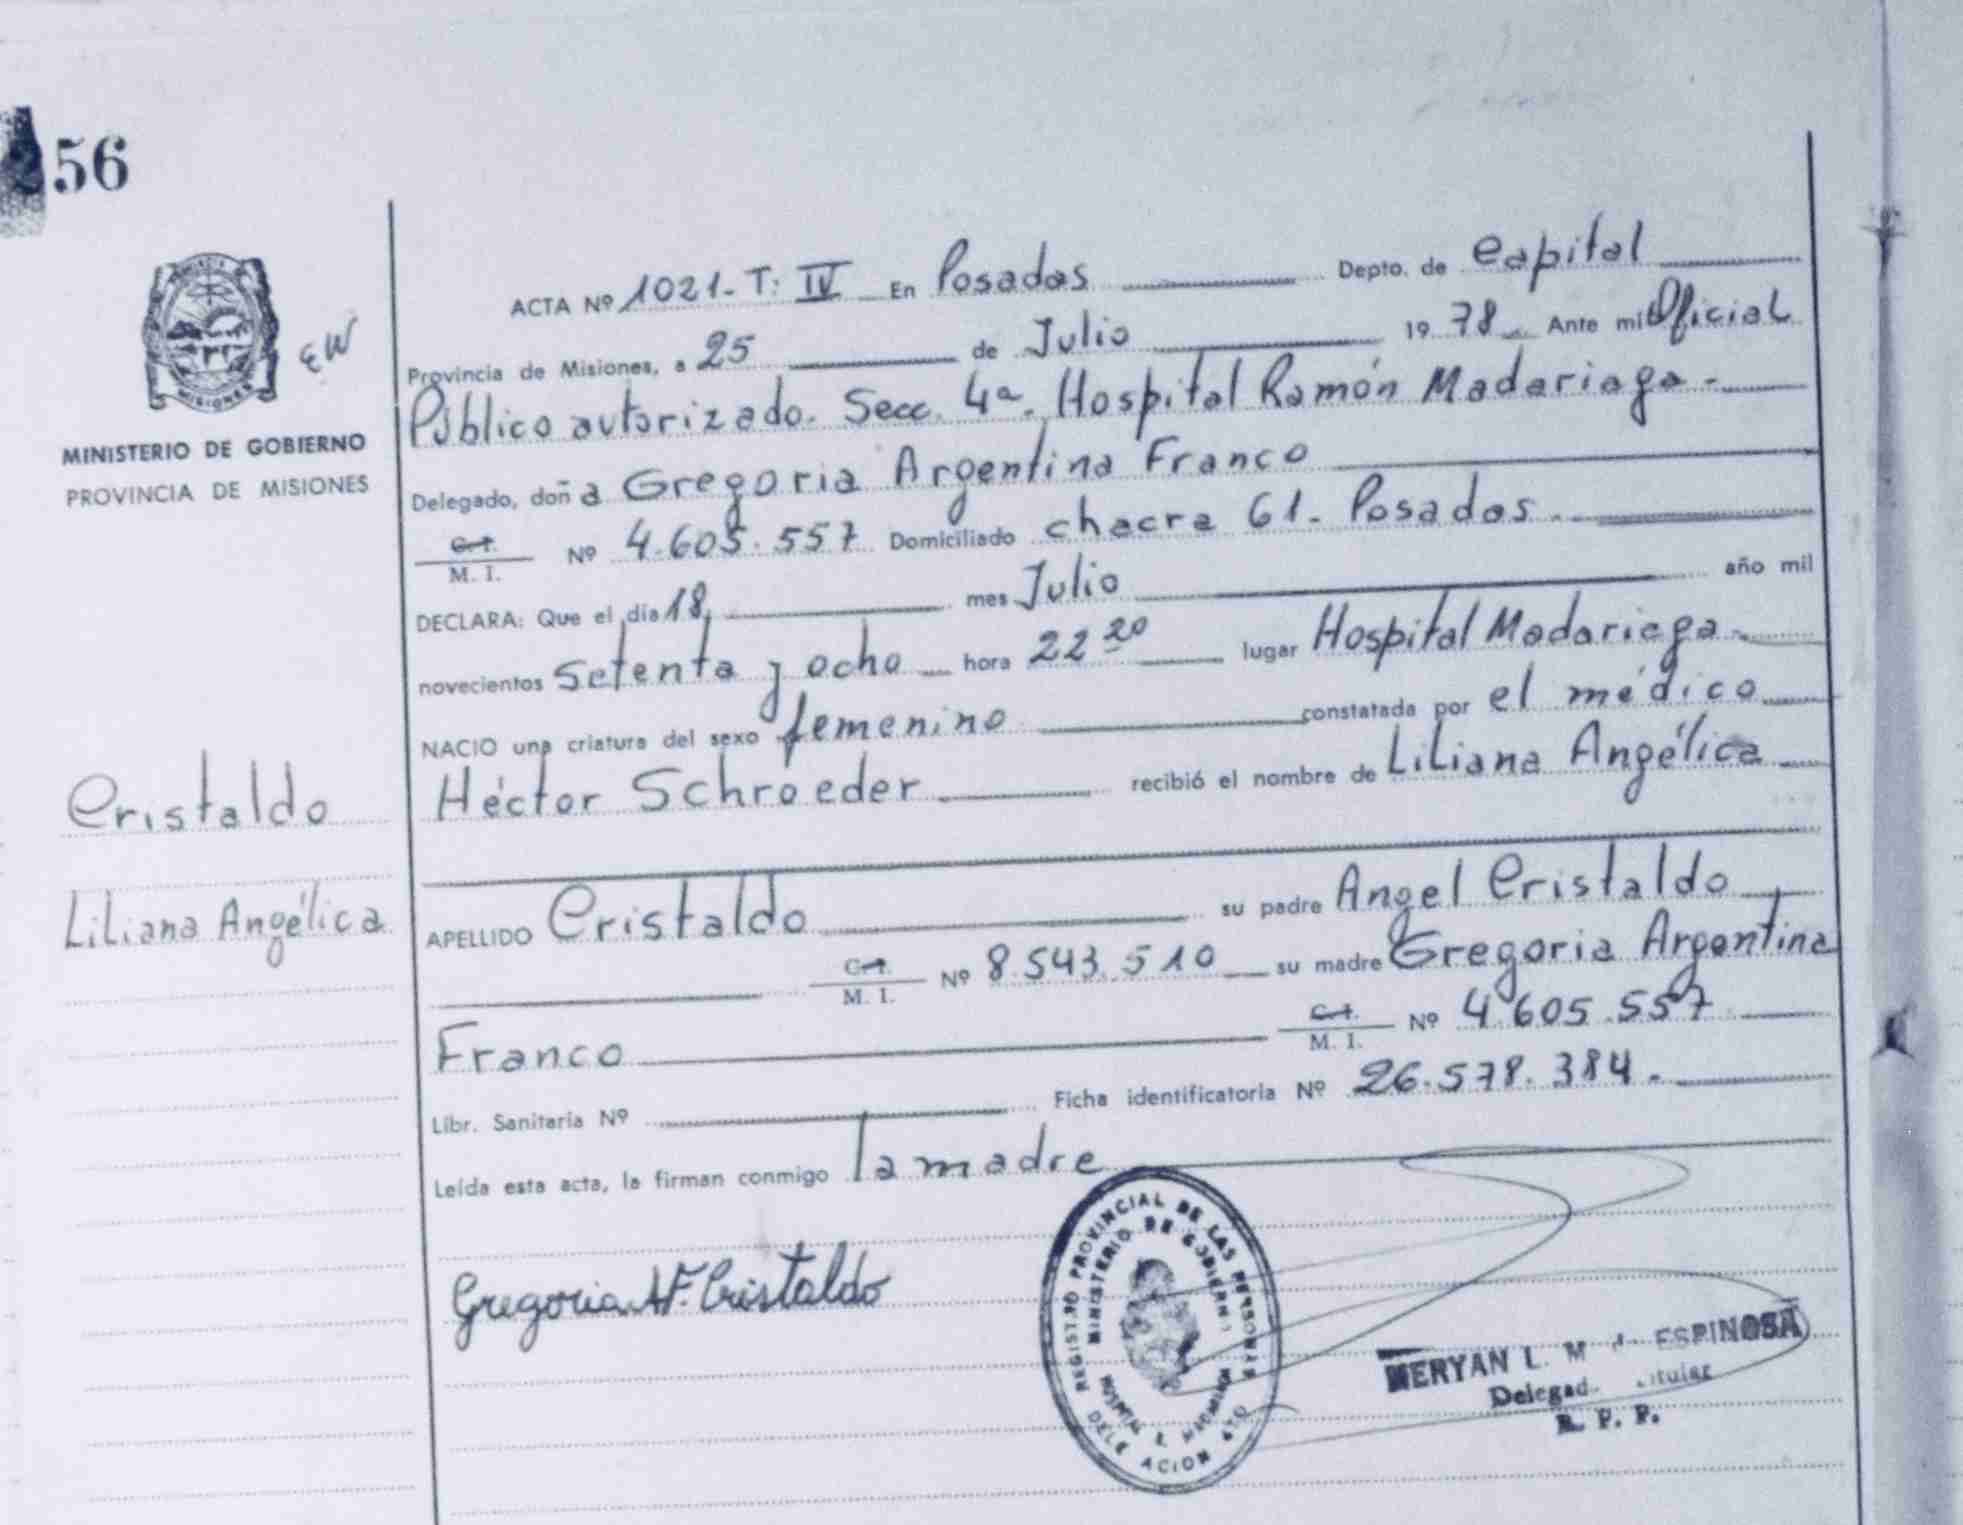 56
MINISTERIO DE GOBIERNO
PROVINCIA DE MISIONES
ACTA Nº 1021-T: IV En Posadas Depto. de Capital
Provincia de Misiones, a 25 de Julio 19 78 Ante mi Oficial
Público autorizado. Secc. 4ª. Hospital Ramón Madariaga-
Delegado, doña Gregoria Argentina Franco
C.I. M. I. Nº 4.605.557 Domiciliado chacra 61- Posados.
DECLARA: Que el día 18 mes Julio año mil
novecientos setenta y ocho hora 22 20 lugar Hospital Madariaga-
NACIO una criatura del sexo femenino constatada por el médico
Héctor Schroeder recibió el nombre de Liliana Angélica
Cristaldo
Liliana Angélica
APELLIDO Cristaldo su padre Angel Cristaldo
C.I. M. I. Nº 8.543.510 su madre Gregoria Argentina
Franco C.I. M. I. Nº 4.605.557
Libr. Sanitaria Nº Ficha identificatoria Nº 26.578.384.
Leída esta acta, la firman conmigo la madre
Gregoria AF. Cristaldo
REGISTRO PROVINCIAL DE LAS PERSONAS
MINISTERIO DE GOBIERNO
MERYAN L. M ESPINOSA
R. P. P.